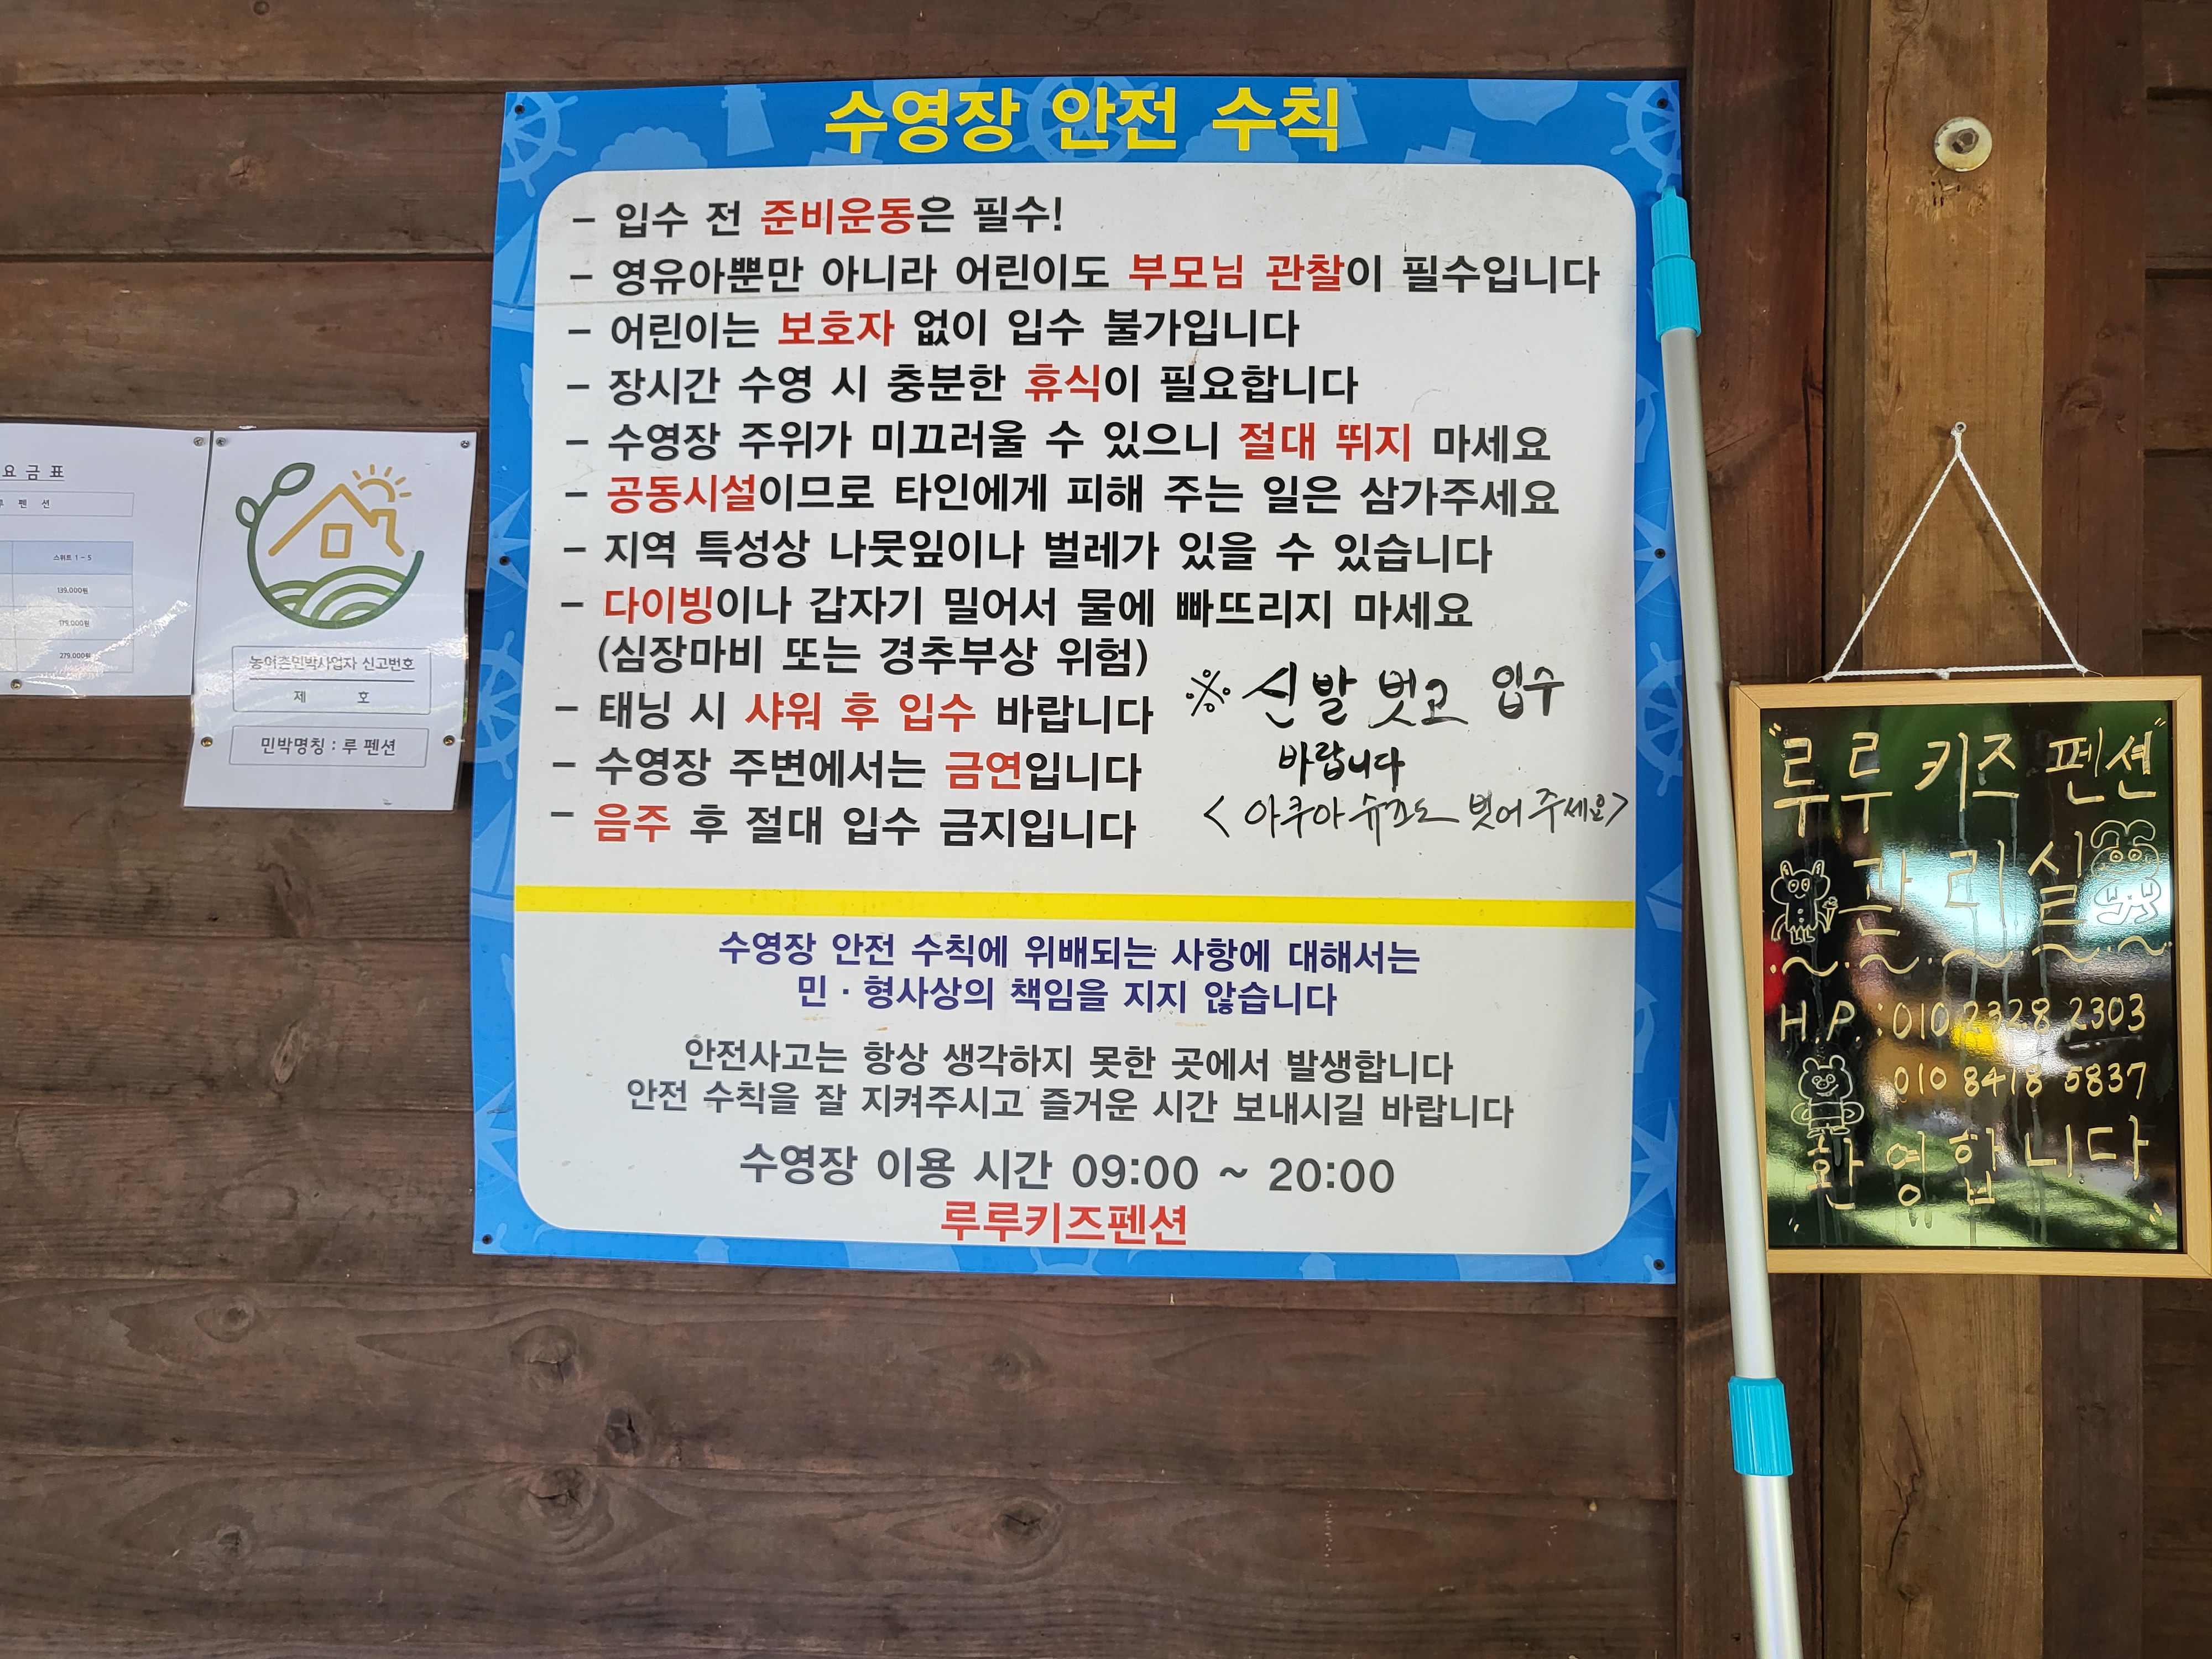 요금표
펜 션
스위트 1 ~ 5
139,000원
179,000원
279,000원
농어촌민박사업자 신고번호
제 호
민박명칭 : 루 펜션
수영장 안전 수칙
- 입수 전 준비운동은 필수!
- 영유아뿐만 아니라 어린이도 부모님 관찰이 필수입니다
- 어린이는 보호자 없이 입수 불가입니다
- 장시간 수영 시 충분한 휴식이 필요합니다
- 수영장 주위가 미끄러울 수 있으니 절대 뛰지 마세요
- 공동시설이므로 타인에게 피해 주는 일은 삼가주세요
- 지역 특성상 나뭇잎이나 벌레가 있을 수 있습니다
- 다이빙이나 갑자기 밀어서 물에 빠뜨리지 마세요
(심장마비 또는 경추부상 위험)
- 태닝 시 샤워 후 입수 바랍니다
- 수영장 주변에서는 금연입니다
- 음주 후 절대 입수 금지입니다
※ 신발 벗고 입수
바랍니다
< 아쿠아슈즈도 벗어주세요>
수영장 안전 수칙에 위배되는 사항에 대해서는
민 · 형사상의 책임을 지지 않습니다
안전사고는 항상 생각하지 못한 곳에서 발생합니다
안전 수착을 잘 지켜주시고 즐거운 시간 보내시길 바랍니다
수영장 이용 시간 09:00 ~ 20:00
루루키즈펜션
"루루 키즈 펜션"
관리실
H.P.:010 2328 2303
010 8418 5837
"환영합니다"